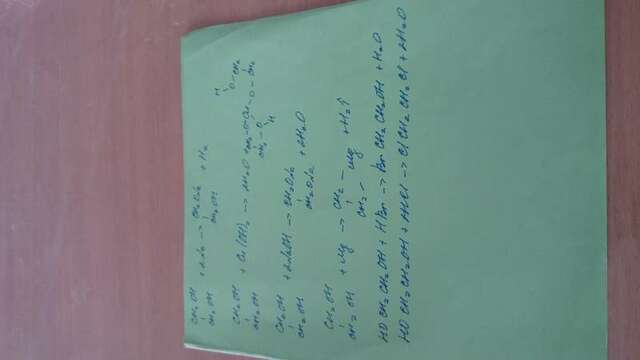 CH₂OH + 2Na → CH₂ONa + H₂
CH₂OH CH₂OH
CH₂OH + Cu(OH)₂ → 2H₂O
CH₂OH
CH₂OH + 2NaOH → CH₂ONa + 2H₂O
CH₂OH CH₂ONa
CH₂OH + Mg → CH₂ – Mg + H₂↑
CH₂OH CH₂ –
HO CH₂CH₂OH + HBr → Br CH₂CH₂OH + H₂O
HO CH₂CH₂OH + 2HCl → Cl CH₂CH₂Cl + 2H₂O